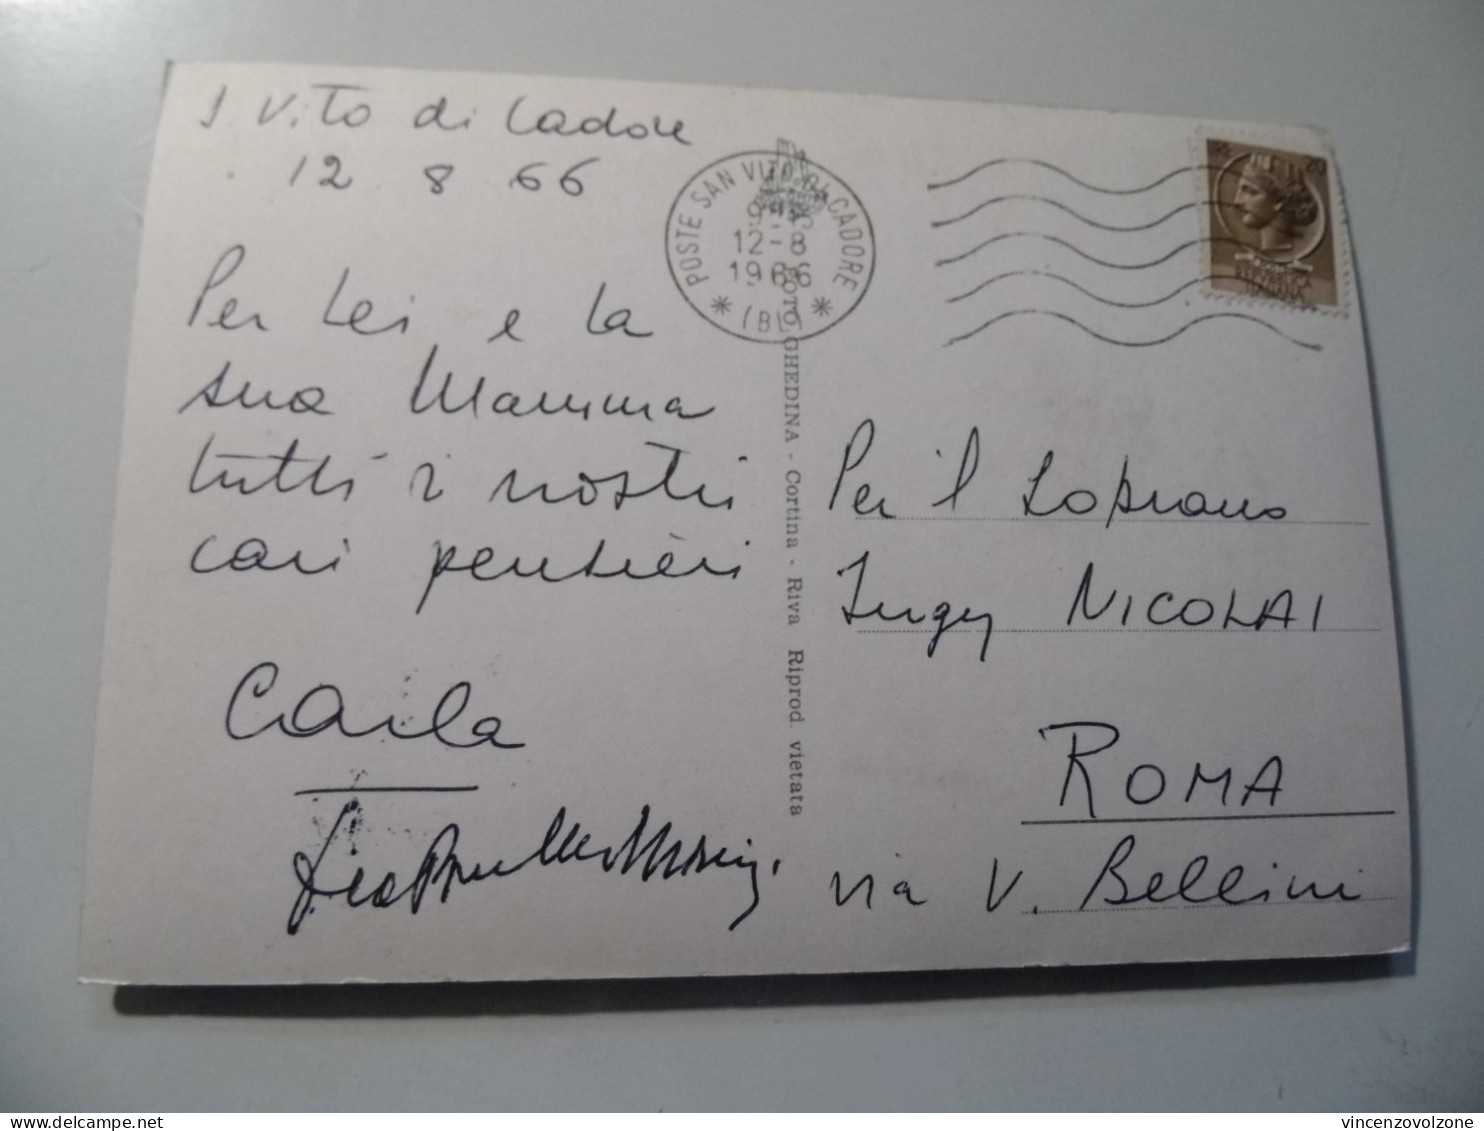 S. Vito di Cadore
12 8 66
Per Lei e la
sua Mamma
tutti i nostri
cari pensieri
Carla
POSTE SAN VITO DI CADORE
12-8
1966
(BL)
FOTO GHEDINA - Cortina - Riva Riprod. vietata
Per il Soprano
NICOLAI
ROMA
via V. Bellini
vincenzovolzone